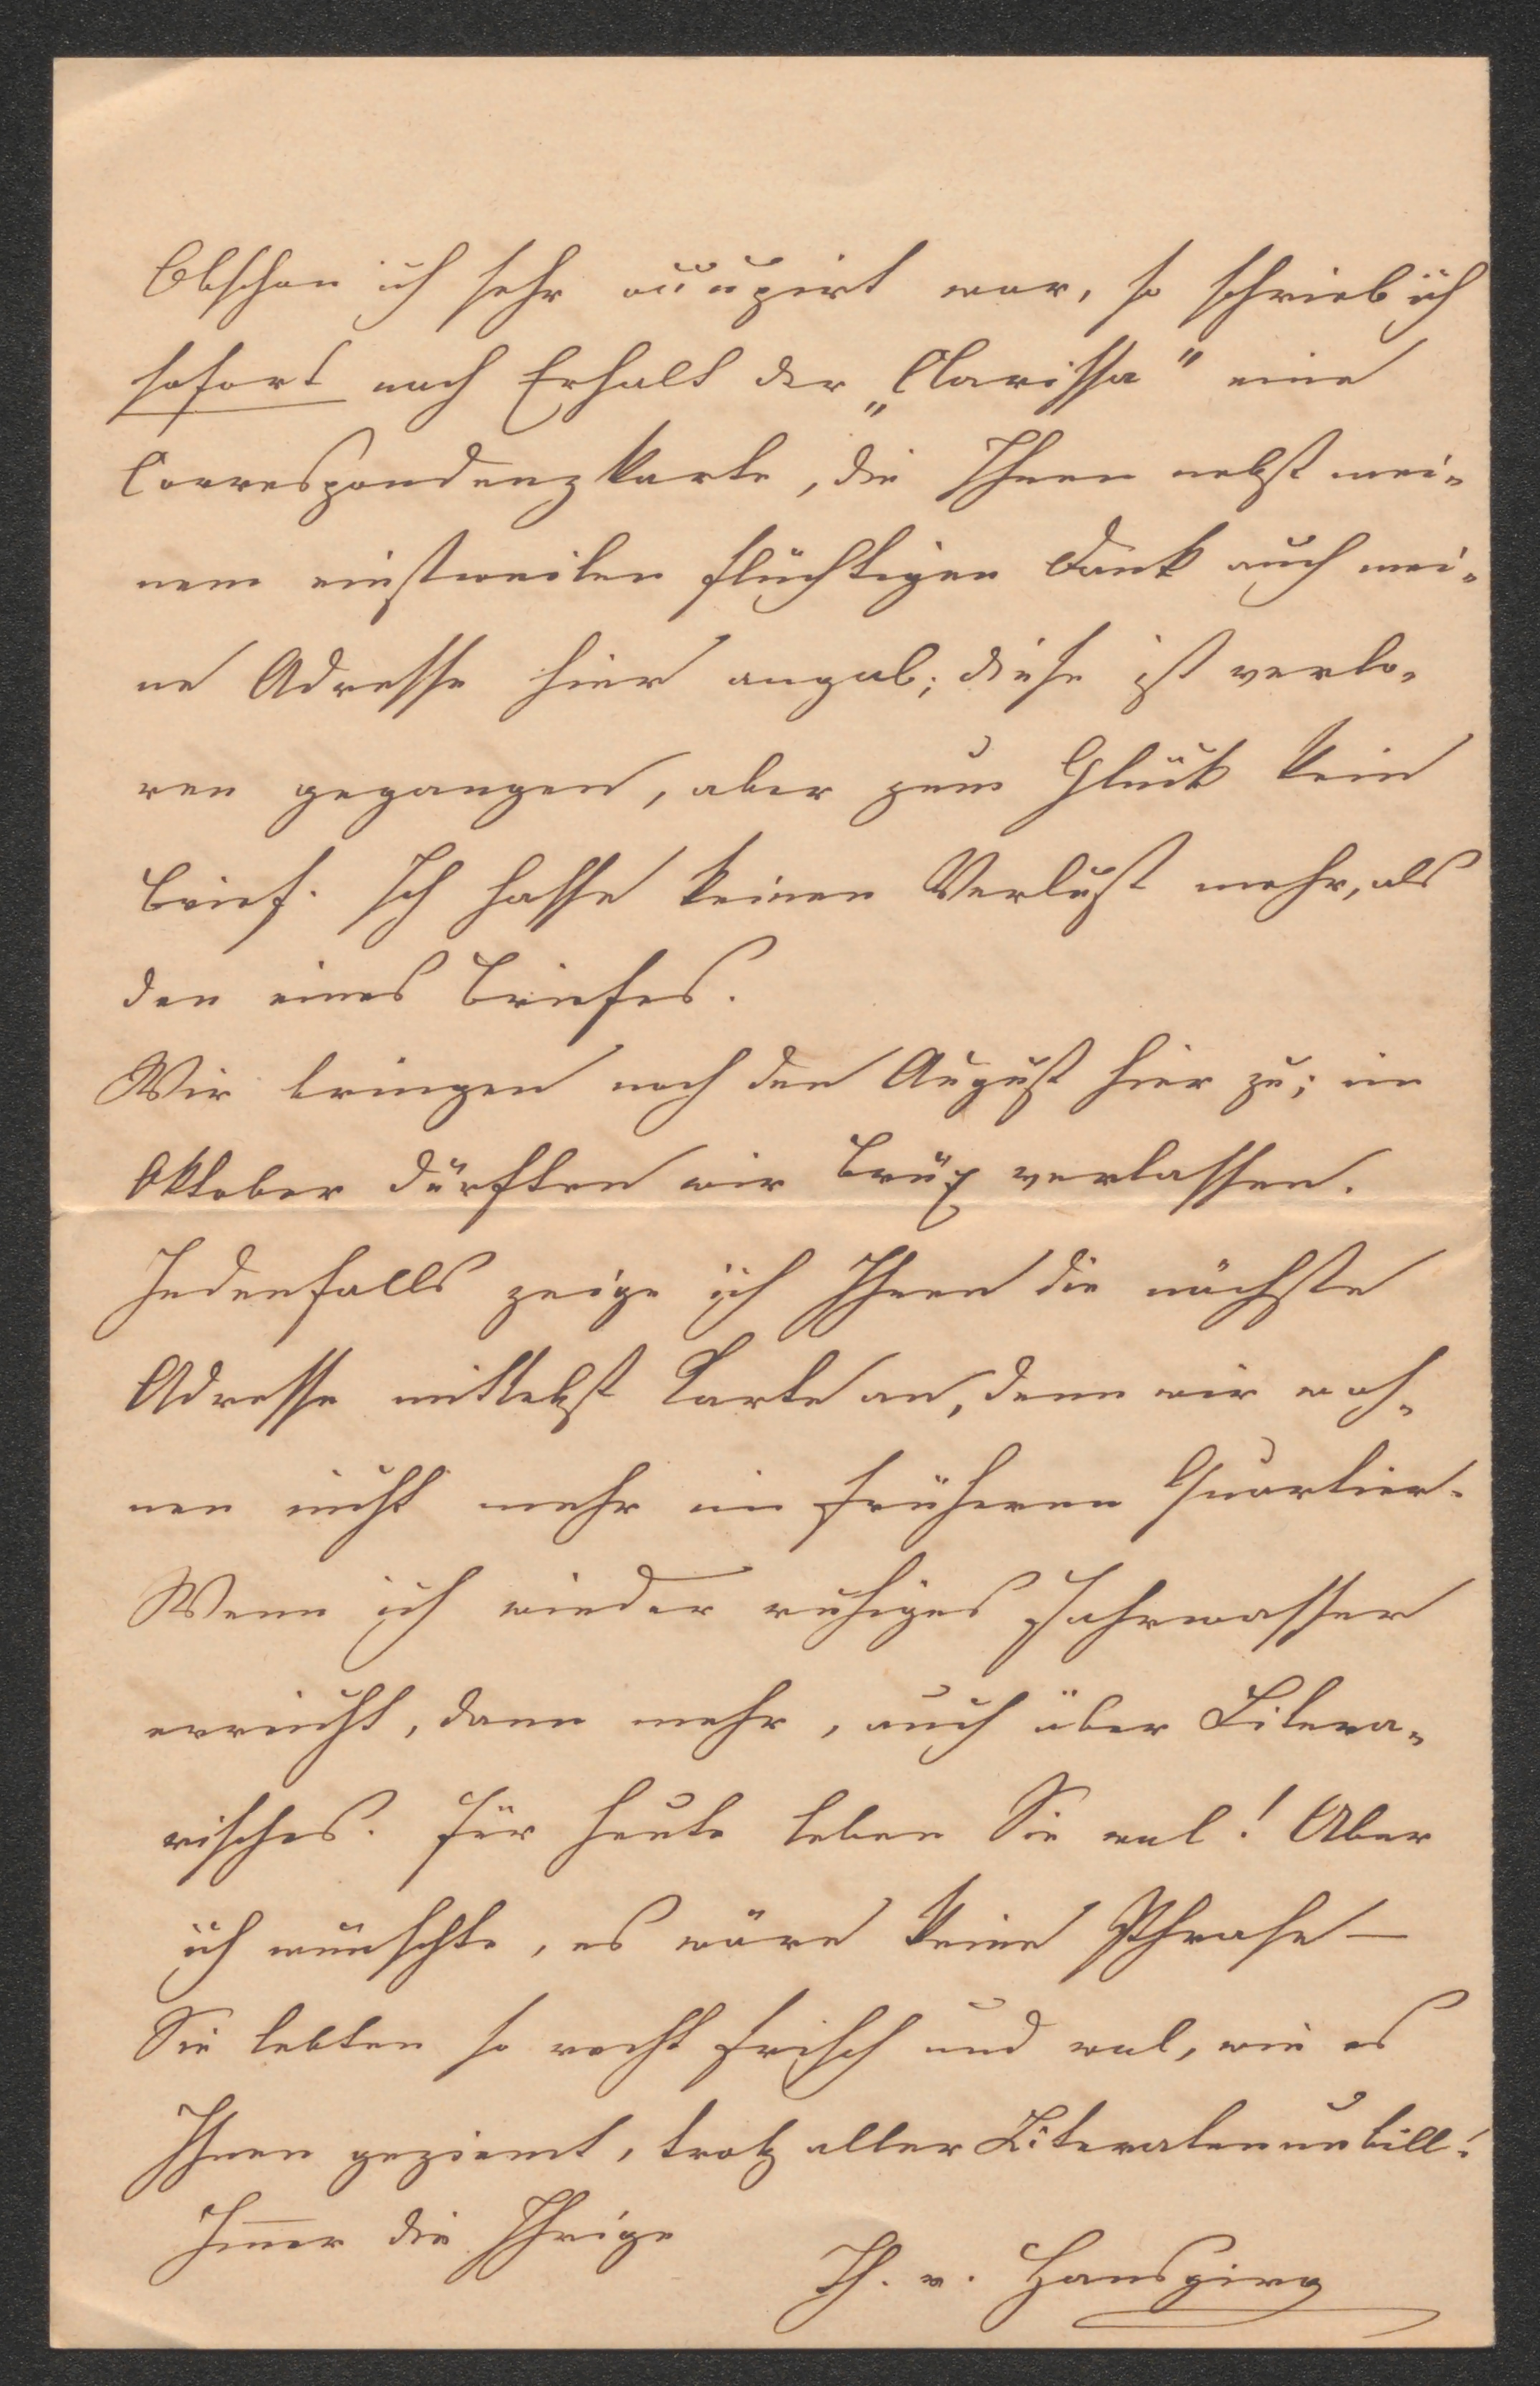 Obschon ich sehr occupirt war, so schrieb ich
sofort nach Erhalt der „Clarissa" eine
Correspondenzkarte, die Ihnen nebst mei-
nem einstweilen flüchtigen Dank auch mei-
ne Adresse hier angab; diese ist verlo-
ren gegangen, aber zum Glück kein
Brief. Ich hasse keinen Verlust mehr, als
den eines Briefes.
Wir bringen noch den August hier zu; im
Oktober dürften wir Brüx verlassen.
Jedenfalls zeige ich Ihnen die nächste
Adresse mittelst Karte an, denn wir woh-
nen nicht mehr im früheren Quartier.
Wenn ich wieder ruhiges Fahrwasser
erreicht, dann mehr, auch über Litera-
risches. Für heute leben Sie wol! Aber
ich wünschte, es wäre keine Phrase –
Sie lebten so recht frisch und wol, wie es
Ihnen geziemt, trotz aller Literatenunbill!
Im̅er die Ihrige
Th. v. Hansgirg